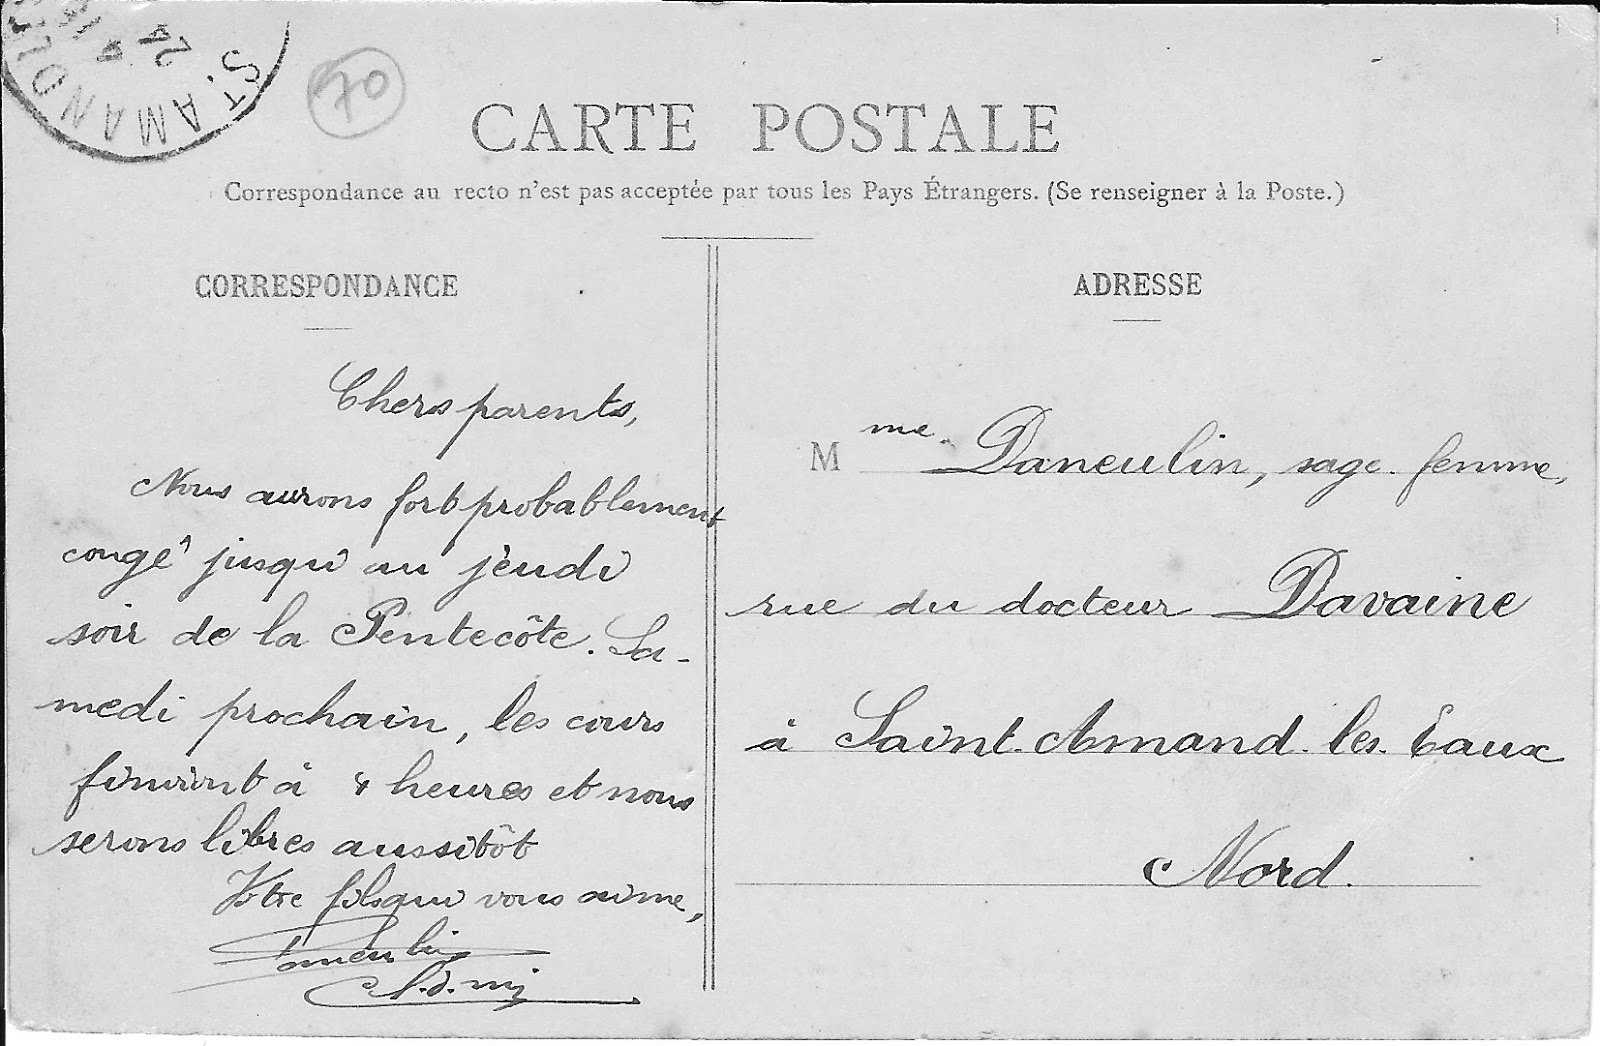 ST AMAND LES
24
4
70
CARTE POSTALE
Correspondance au recto n'est pas acceptée par tous les Pays Étrangers. (Se renseigner à la Poste.)
CORRESPONDANCE
Chers parents,
Nous aurons fort probablement
congé jusqu'au jeudi
soir de la Pentecôte. Sa-
medi prochain, les cours
finiront à 4 heures et nous
serons libres aussitôt
Votre fils qui vous aime,
Daneulin
ADRESSE
Mme. Daneulin, sage-femme,
rue du docteur Davaine
à Saint-Amand-les-Eaux
Nord.